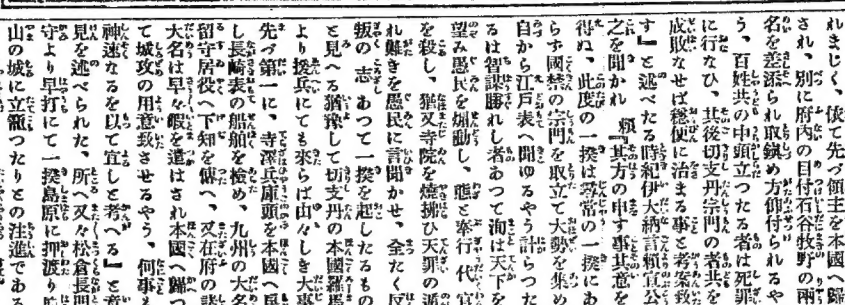 れまじく、依て先づ領主を本國へ歸
され、別に府内の目付石谷牧野の兩
名を差添られ取鎭め方仰付られるや
う、百姓共の中頭立つたる者は死罪
に行なひ、其後切支丹宗門の者共を
成敗なせば穩便に治まる事と考案致
す』と述べたる時紀伊大納言賴宣公
之を聞かれ 賴『其方の申す事其意を
得ぬ、此度の一揆は尋常の一揆にあ
らず國禁の宗門を取立て大勢を集め
自から江戸表へ聞ゆるやう計らつた
るは智謀勝れし者あつて洵は天下を
望み愚民を煽動し、態と奉行、代官
を殺し、猶又寺院を燒拂ひ天罪の遁
れ難きを愚民に言聞かせ、全たく反
叛の志あつて一揆を起したるもの
と見へる猶豫して切支丹の本國羅馬
より援兵にても來らば由々しき大事
先づ第一に、寺澤兵庫頭を本國へ
し長崎表の船舶を檢め、九州の大名
留守居役へ下知を傳へ、又在府の諸
大名は早々暇を遣はされ本國へ歸つ
て城攻の用意致させるやう、何事も
神速なるを以て宜しと考へる』と意
見を述べられた、所へ又々松倉長門
守より早打にて一揆島原に押渡り
山の城に立籠つたりとの注進である